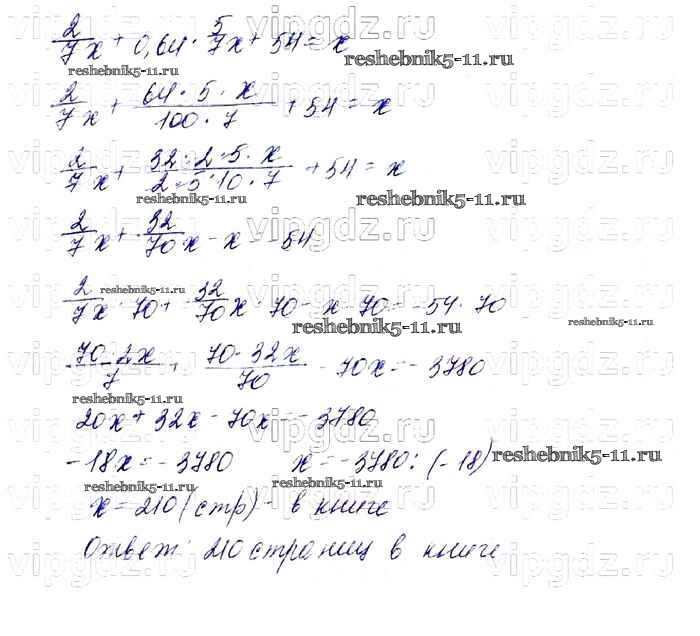 2/7 x + 0,64 · 5/7 x + 54 = x
reshebnik5-11.ru reshebnik5-11.ru
2/7 x + 64 · 5 · x / 100 · 7 + 54 = x
2/7 x + 32 · 2 · 5 · x / 2 · 5 · 10 · 7 + 54 = x
reshebnik5-11.ru reshebnik5-11.ru
2/7 x + 32/70 x - x = -54
reshebnik5-11.ru
2/7 x · 70 + 32/70 x · 70 - x · 70 = -54 · 70
reshebnik5-11.ru reshebnik5-11.ru
70 · 2x / 7 + 70 · 32x / 70 - 70x = -3780
reshebnik5-11.ru
20x + 32x - 70x = -3780
-18x = -3780 x = -3780 : (-18) reshebnik5-11.ru
reshebnik5-11.ru reshebnik5-11.ru
x = 210 (стр) - в книге
Ответ: 210 страниц в книге
vipgdz.ru